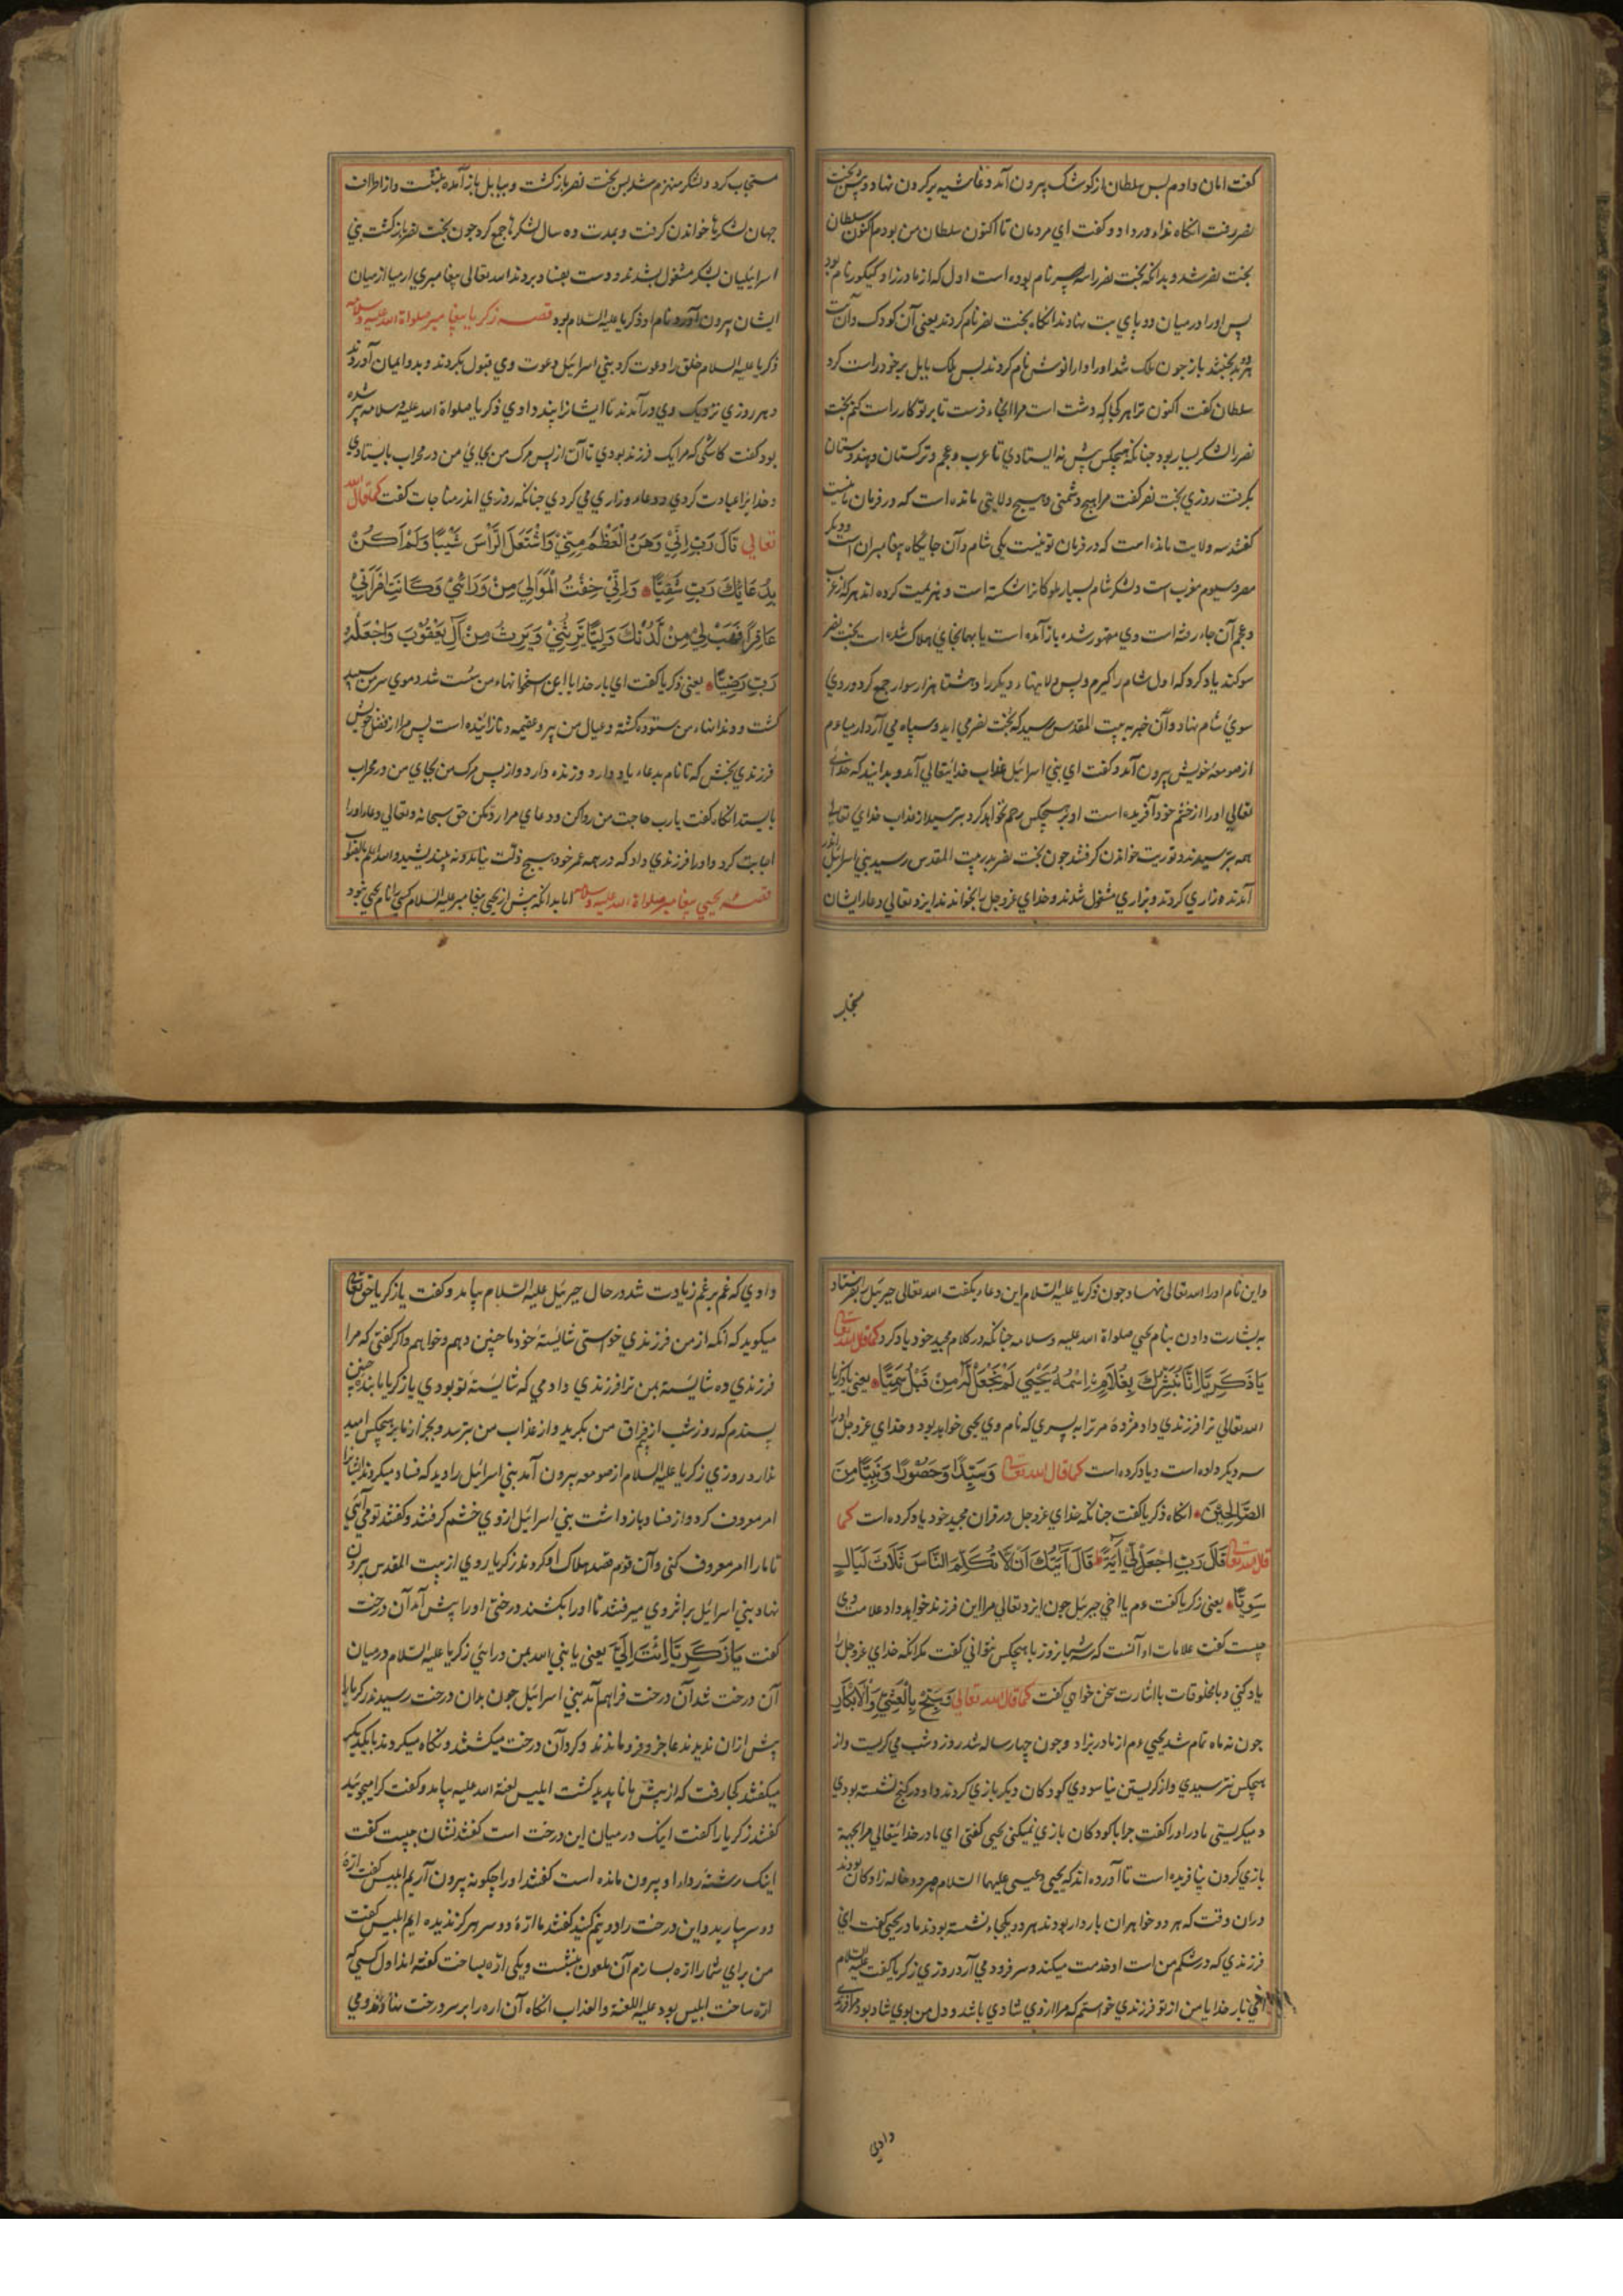 گفت امان دادم پس سلطان از کوشک بیرون آمد و غاشیه بر گردن نهاد و پیش بخت
نصر رفت آنگاه ندا در داد و گفت ای مردمان تا اکنون سلطان من بودم اکنون سلطان
بخت نصر شد و بدانکه بخت نصر را سه نام بوده است اول که از مادر زاد نام بود
پس او را در میان دو پای بت نهادند آنگاه بخت نصر نام کردند یعنی آن کودک و آن بت
باز چون ملک شد او را نام کردند پس ملک بابل بر خود راست کرد
سلطان گفت اکنون ترا هر کجا که دشت است مرا آنجا فرست تا بر تو کار راست کنم بخت
نصر را لشکر بسیار بود چنانکه هیچکس پیش نه ایستادی تا عرب و عجم و ترکستان و هندوستان
بگرفت روزی بخت نصر گفت مرا هیچ دشمنی و هیچ ولایتی مانده است که در فرمان ما نیست
گفتند سه ولایت مانده است که در فرمان تو نیست یکی شام و آن جایگاه پیغامبران است و دیگر
مصر و سیوم مغرب است و لشکر شام بسیار ملوکان را شکسته است و هزیمت کرده اند هر که از عرب
و عجم آن جا رفته است وی مقهور شده باز آمده است یا بهمانجای هلاک شده است بخت نصر
سوگند یاد کرد که اول شام را گیرم و پس ولایتهاء دیگر را و هشتاد هزار سوار جمع کرد و روی
سوی شام نهاد و آن خبر به بیت المقدس رسید که بخت نصر می آید و سپاه می آرد ارمیا عم
از صومعه خویش بیرون آمد و گفت ای بنی اسرائیل عذاب خدایتعالی آمد و بدانید که خدای
تعالی او را از خشم خود آفریده است او بر هیچکس رحم نخواهد کرد بترسید از عذاب خدای تعالی
همه بترسیدند و توریت خواندن گرفتند چون بخت نصر بدر بیت المقدس رسید بنی اسرائیل
آمدند و زاری کردند و بزاری مشغول شدند و خدای عز و جل را بخواندند ایزد تعالی دعاء ایشان
مستجاب کرد و لشکر منهزم شد پس بخت نصر باز گشت و ببابل باز آمده بنشست و از اطراف
جهان لشکرها خواندن گرفت و بمدت ده سال لشکرها جمع کرد چون بخت نصر باز گشت بنی
اسرائیلیان بشکر مشغول بشدند و دست بفساد بردند الله تعالی پیغامبری ارمیا از میان
ایشان بیرون آورد نام او ذکریا علیه السلام بود قصه زکریا پیغامبر صلواة الله علیه و سلامه
ذکریا علیه السلام خلق را دعوت کرد بنی اسرائیل دعوت وی قبول بکردند و بدو ایمان آوردند
و هر روزی نزدیک وی در آمدند تا ایشانرا پند دادی ذکریا صلواة الله علیه و سلامه پیر شده
بود گفت کاشکی که مرا یک فرزند بودی تا آن از پس مرک من بجای من در محراب بایستادی
و خدا یرا عبادت کردی و دعا و زاری می کردی چنانکه روزی اندر مناجات گفت کما قال الله
تعالی قَالَ رَبِّ اِنِّیْ وَهَنَ الْعَظْمُ مِنِّیْ وَاشْتَعَلَ الرَّأْسُ شَیْبًا وَلَمْ اَکُنْ
بِدُعَائِكَ رَبِّ شَقِیًّا وَاِنِّیْ خِفْتُ الْمَوَالِیَ مِنْ وَرَائِیْ وَکَانَتِ امْرَأَتِیْ
عَاقِرًا فَهَبْ لِیْ مِنْ لَدُنْكَ وَلِیًّا یَرِثُنِیْ وَیَرِثُ مِنْ آلِ یَعْقُوْبَ وَاجْعَلْهُ
رَبِّ رَضِیًّا یعنی ذکریا گفت ای بار خدایا این استخوانهاء من سست شد و موی سر من سپید
گشت و دندانهاء من ستوده گشته و عیال من پیر و عقیمه و نازائیده است پس مرا از فضل خویش
فرزندی بخش که تا نام بدعاء یاد دارد و زنده دارد و از پس مرک من بجای من در محراب
بایستد آنگاه گفت یارب حاجت من روا کن و دعای مرا رد مکن حق سبحانه و تعالی دعاء او را
اجابت کرد و او را فرزندی داد که در همه عمر خود هیچ ذلت نیامد و نه بیندیشید والله اعلم بالصواب
قصه یحیی پیغامبر صلواة الله علیه و سلامه اما بدانکه پیش از یحیی پیغامبر علیه السلام کسی را نام یحیی نبود
و این نام او را الله تعالی نهاد و چون ذکریا علیه السلام این دعاء بگفت الله تعالی جبرئیل را بفرستاد
به بشارت دادن بنام یحیی صلواة الله علیه و سلامه چنانکه در کلام مجید خود یاد کرد کما قال الله تعالی
یَا ذَکَرِیَّا اِنَّا نُبَشِّرُكَ بِغُلَامٍ اسْمُهُ یَحْیٰی لَمْ نَجْعَلْ لَهُ مِنْ قَبْلُ سَمِیًّا یعنی یا ذکریا
الله تعالی ترا فرزندی داد مژده مر ترا به پسری که نام وی یحیی خواهد بود و خدای عز و جل او را
سه دیگر داده است و یاد کرده است کما قال الله تعالی وَسَیِّدًا وَحَصُوْرًا وَنَبِیًّا مِنَ
الصَّالِحِیْنَ آنگاه ذکریا گفت چنانکه خدای عز و جل در قران مجید خود یاد کرده است کما
قال الله تعالی قَالَ رَبِّ اجْعَلْ لِّیْ آیَةً قَالَ آیَتُكَ اَنْ لَّا تُکَلِّمَ النَّاسَ ثَلَاثَ لَیَالٍ
سَوِیًّا یعنی زکریا گفت عم یا اخی جبرئیل چون ایزد تعالی مرا این فرزند خواهد داد علامت وی
چیست گفت علامات او آنست که سه شبانروز با هیچکس نتوانی گفت مگر آنکه خدای عز و جل را
یاد کنی و با مخلوقات با اشارت سخن خواهی گفت کما قال الله تعالی فَسَبِّحْ بِالْعَشِیِّ وَالْاِبْکَارِ
چون نه ماه تمام شد یحیی عم از مادر بزاد و چون چهار ساله شد روز و شب می گریست و از
هیچکس نترسیدی و از گریستن نیاسودی کودکان دیگر بازی کردند و او در کنج نشسته بودی
و میگریستی مادر او را گفت چرا با کودکان بازی نمیکنی یحیی گفتی ای مادر خدایتعالی مرا بجهة
بازی کردن نیافریده است تا آورده اند که یحیی و عیسی علیهما السلام هر دو خاله زادگان بودند
دران وقت که هر دو خواهران باردار بودند هر دو یکجاء نشسته بودند مادر یحیی گفت این
فرزندی که در شکم من است او خدمت میکند و سر فرود می آرد روزی زکریا گفت علیه السلام
بار خدایا من از تو فرزندی خواستم که مرا از وی شادی باشد و دل من بوی شاد بود مرا فرزندی
دادی که غم بر غم زیادت شد در حال جبرئیل علیه السلام بیامد و گفت یا زکریا حق تعالی
میگوید که آنکه از من فرزندی خواستی شایسته خود ما چنین دهم و خواهم و اگر گفتی که مرا
فرزندی ده شایسته بمن ترا فرزندی دادمی که شایسته تو بودی یا زکریا ما بنده چنین
پسندم که روز شب از فراق من بگرید و از عذاب من بترسد و بجز از ما بر هیچکس امید
ندارد روزی زکریا علیه السلام از صومعه بیرون آمد بنی اسرائیل را دید که فساد میکردند ایشانرا
امر معروف کرد و از فساد باز داشت بنی اسرائیل از وی خشم گرفتند و گفتند تو می آیی
تا مارا امر معروف کنی و آن قوم قصد هلاک او کردند زکریا روی از بیت المقدس بیرون
نهاد بنی اسرائیل بر اثر وی میرفتند تا او را بکشند درختی او را پیش آمد آن درخت
گفت یَا زَکَرِیَّا اِئْتِ اِلَیَّ یعنی یا نبی الله بمن درائی زکریا علیه السلام درمیان
آن درخت شد آن درخت فراهم آمد بنی اسرائیل چون بدان درخت رسیدند زکریا را
پیش ازان ندیدند عاجز و فرو ماندند و گرد آن درخت میگشتند و نگاه میکردند با یکدیگر
میگفتند کجا رفت که از پیش ما ناپدید گشت ابلیس لعنة الله علیه بیامد و گفت کرا میجوئید
گفتند زکریا را گفت اینک در میان این درخت است گفتند نشان چیست گفت
اینک رشته رداء او بیرون مانده است گفتند او را چگونه بیرون آریم ابلیس گفت ارّه
دو سر بیارید و این درخت را دو نیم کنید گفتند ما ارّه دو سر هرگز ندیده ایم ابلیس گفت
من برای شما را ارّه بسازم آن ملعون بنشست و یکی ارّه بساخت گفته اند اول کسی که
ارّه ساخت ابلیس بود علیه اللعنة والعذاب آنگاه آن اره را بر سر درخت نهادند و می
دادی